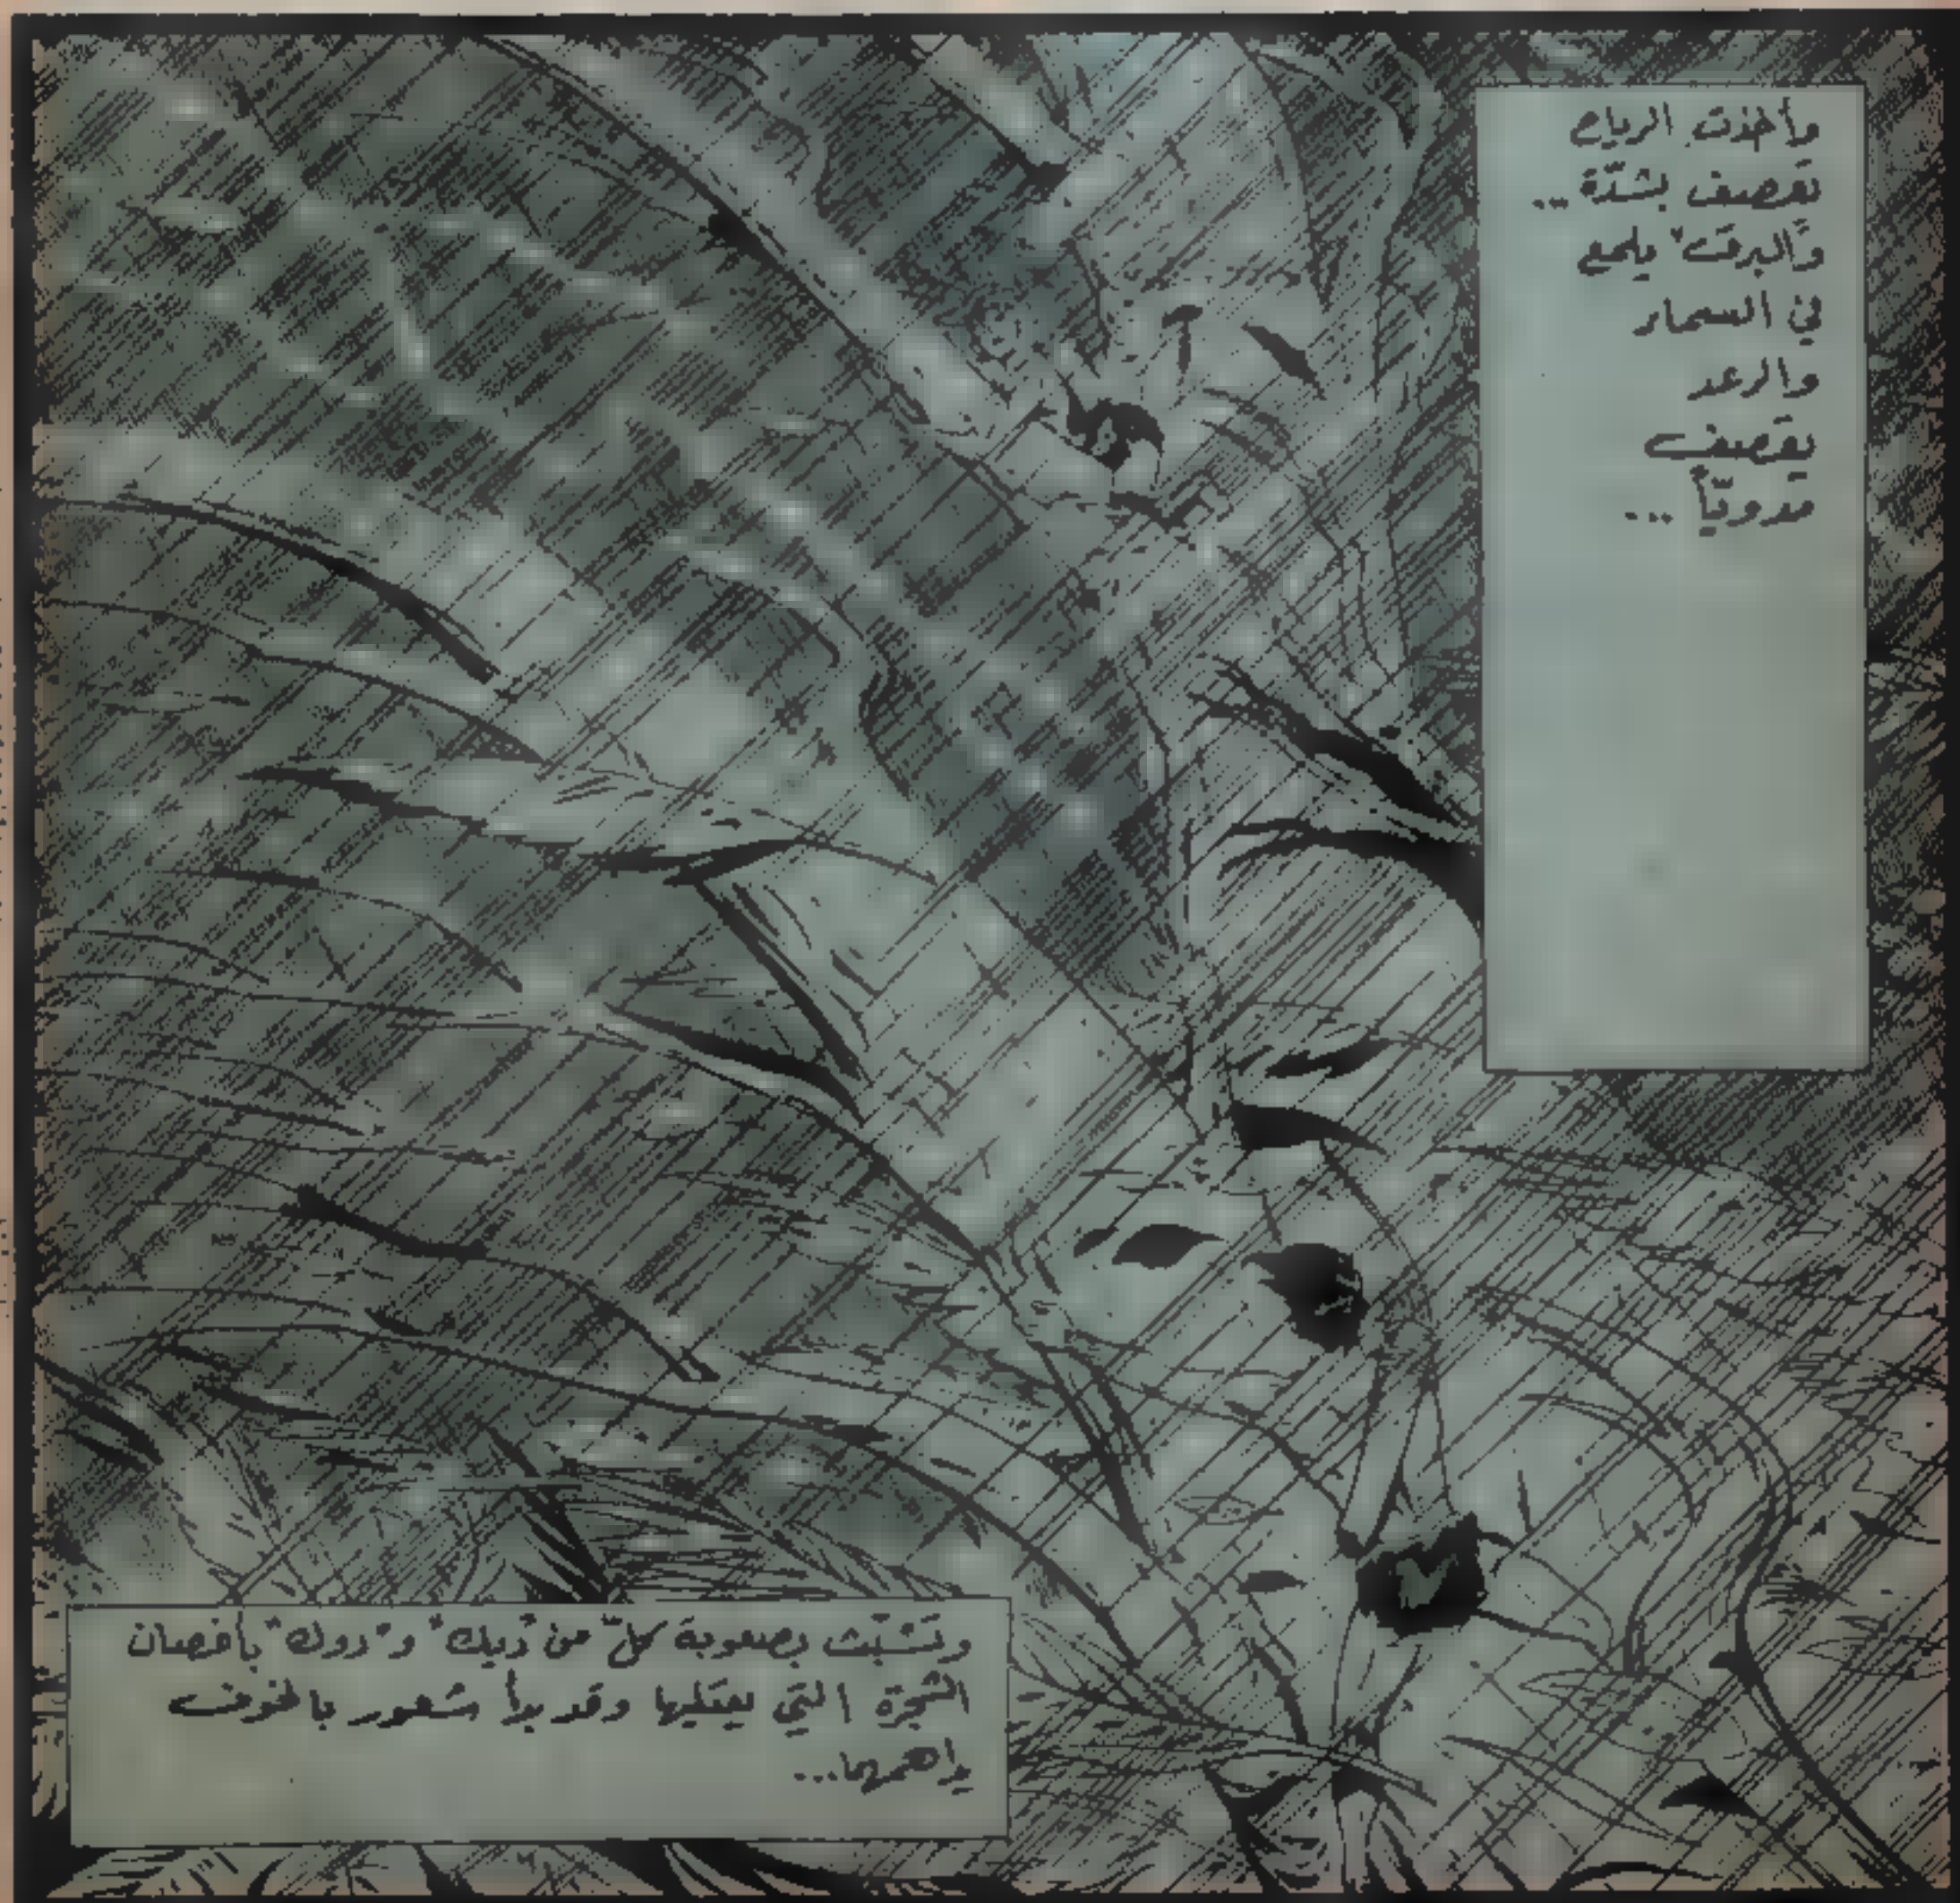 وأخذت الرياح
تعصف بشدّة...
والبرق يلمع
في السماء
والرعد
يقصف
مدويّاً...
وتشبّث بصعوبة كلّ من "ديك" و"دوك" بأغصان
الشجرة التي يعتليها وقد بدأ شعور بالخوف
يداهمهما...